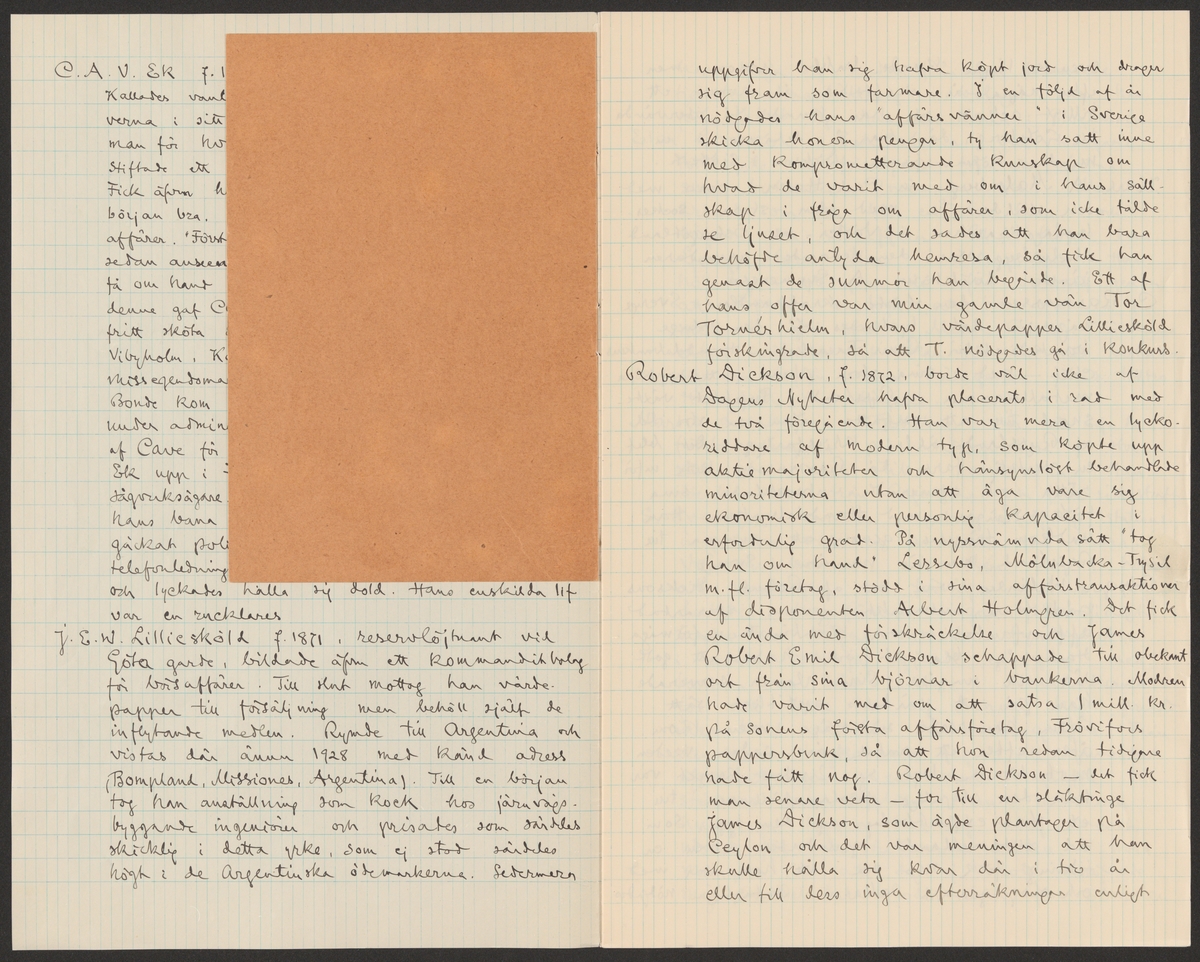 C. A. V. Ek f. 1
Kallades vanl
verna i sitt
man för hv
stiftade ett
Fick äfven h
början bra.
affärer. "Först
sedan ansen
få om hand
denne gaf C
fritt sköta
Vibyholm, K
missegendoma
Bonde kom
under admin
af Cave för
Ek upp i
sågverksägare
hans bana
gäckat poli
telefonledning
och lyckades hålla sig dold. Hans enskilda lif
var en rucklares
J. E. W. Lilliesköld f. 1871, reservlöjtnant vid
Göta garde, bildade äfven ett kommanditbolag
för börsaffärer. Till slut mottog han värde-
papper till försäljning men behöll själf de
inflytande medlen. Rymde till Argentina och
vistas där ännu 1928 med känd adress
(Bompland, Missiones, Argentina). Till en början
tog han anställning som kock hos järnvägs-
byggande ingeniörer och prisades som särdeles
skicklig i detta yrke, som ej stod särdeles
högt i de Argentinska ödemarkerna. Sedermera
uppgifver han sig hafva köpt jord och drager
sig fram som farmare. I en följd af år
nödgades hans "affärsvänner" i Sverige
skicka honom pengar, ty han satt inne
med komprometterande kunskap om
hvad de varit med om i hans säll-
skap i fråga om affärer, som icke tålde
se ljuset, och det sades att han bara
behöfde antyda hemresa, så fick han
genast de summor han begärde. Ett af
hans offer var min gamle vän Tor
Tornérhielm, hvars värdepapper Lilliesköld
förskingrade, så att T. nödgades gå i konkurs.
Robert Dickson, f. 1872, borde väl icke af
Dagens Nyheter hafva placerats i rad med
de två föregående. Han var mera en lycko-
riddare af modern typ, som köpte upp
aktiemajoriteter och hänsynslöst behandlade
minoriteterna utan att äga vare sig
ekonomisk eller personlig kapacitet i
erforderlig grad. På nyssnämnda sätt "tog
han om hand" Lessebo, Mölnbacka-Trysil
m.fl. företag, stödd i sina affärstransaktioner
af disponenten Albert Holmgren. Det fick
en ända med förskräckelse och James
Robert Emil Dickson schappade till obekant
ort från sina björnar i bankerna. Modren
hade varit med om att satsa 1 mill. kr.
på sonens första affärsföretag, Frövifors
pappersbruk, så att hon redan tidigare
hade fått nog. Robert Dickson — det fick
man senare veta — for till en släktinge
James Dickson, som ägde plantager på
Ceylon och det var meningen att han
skulle hålla sig kvar där i tio år
eller till dess inga efterräkningar enligt